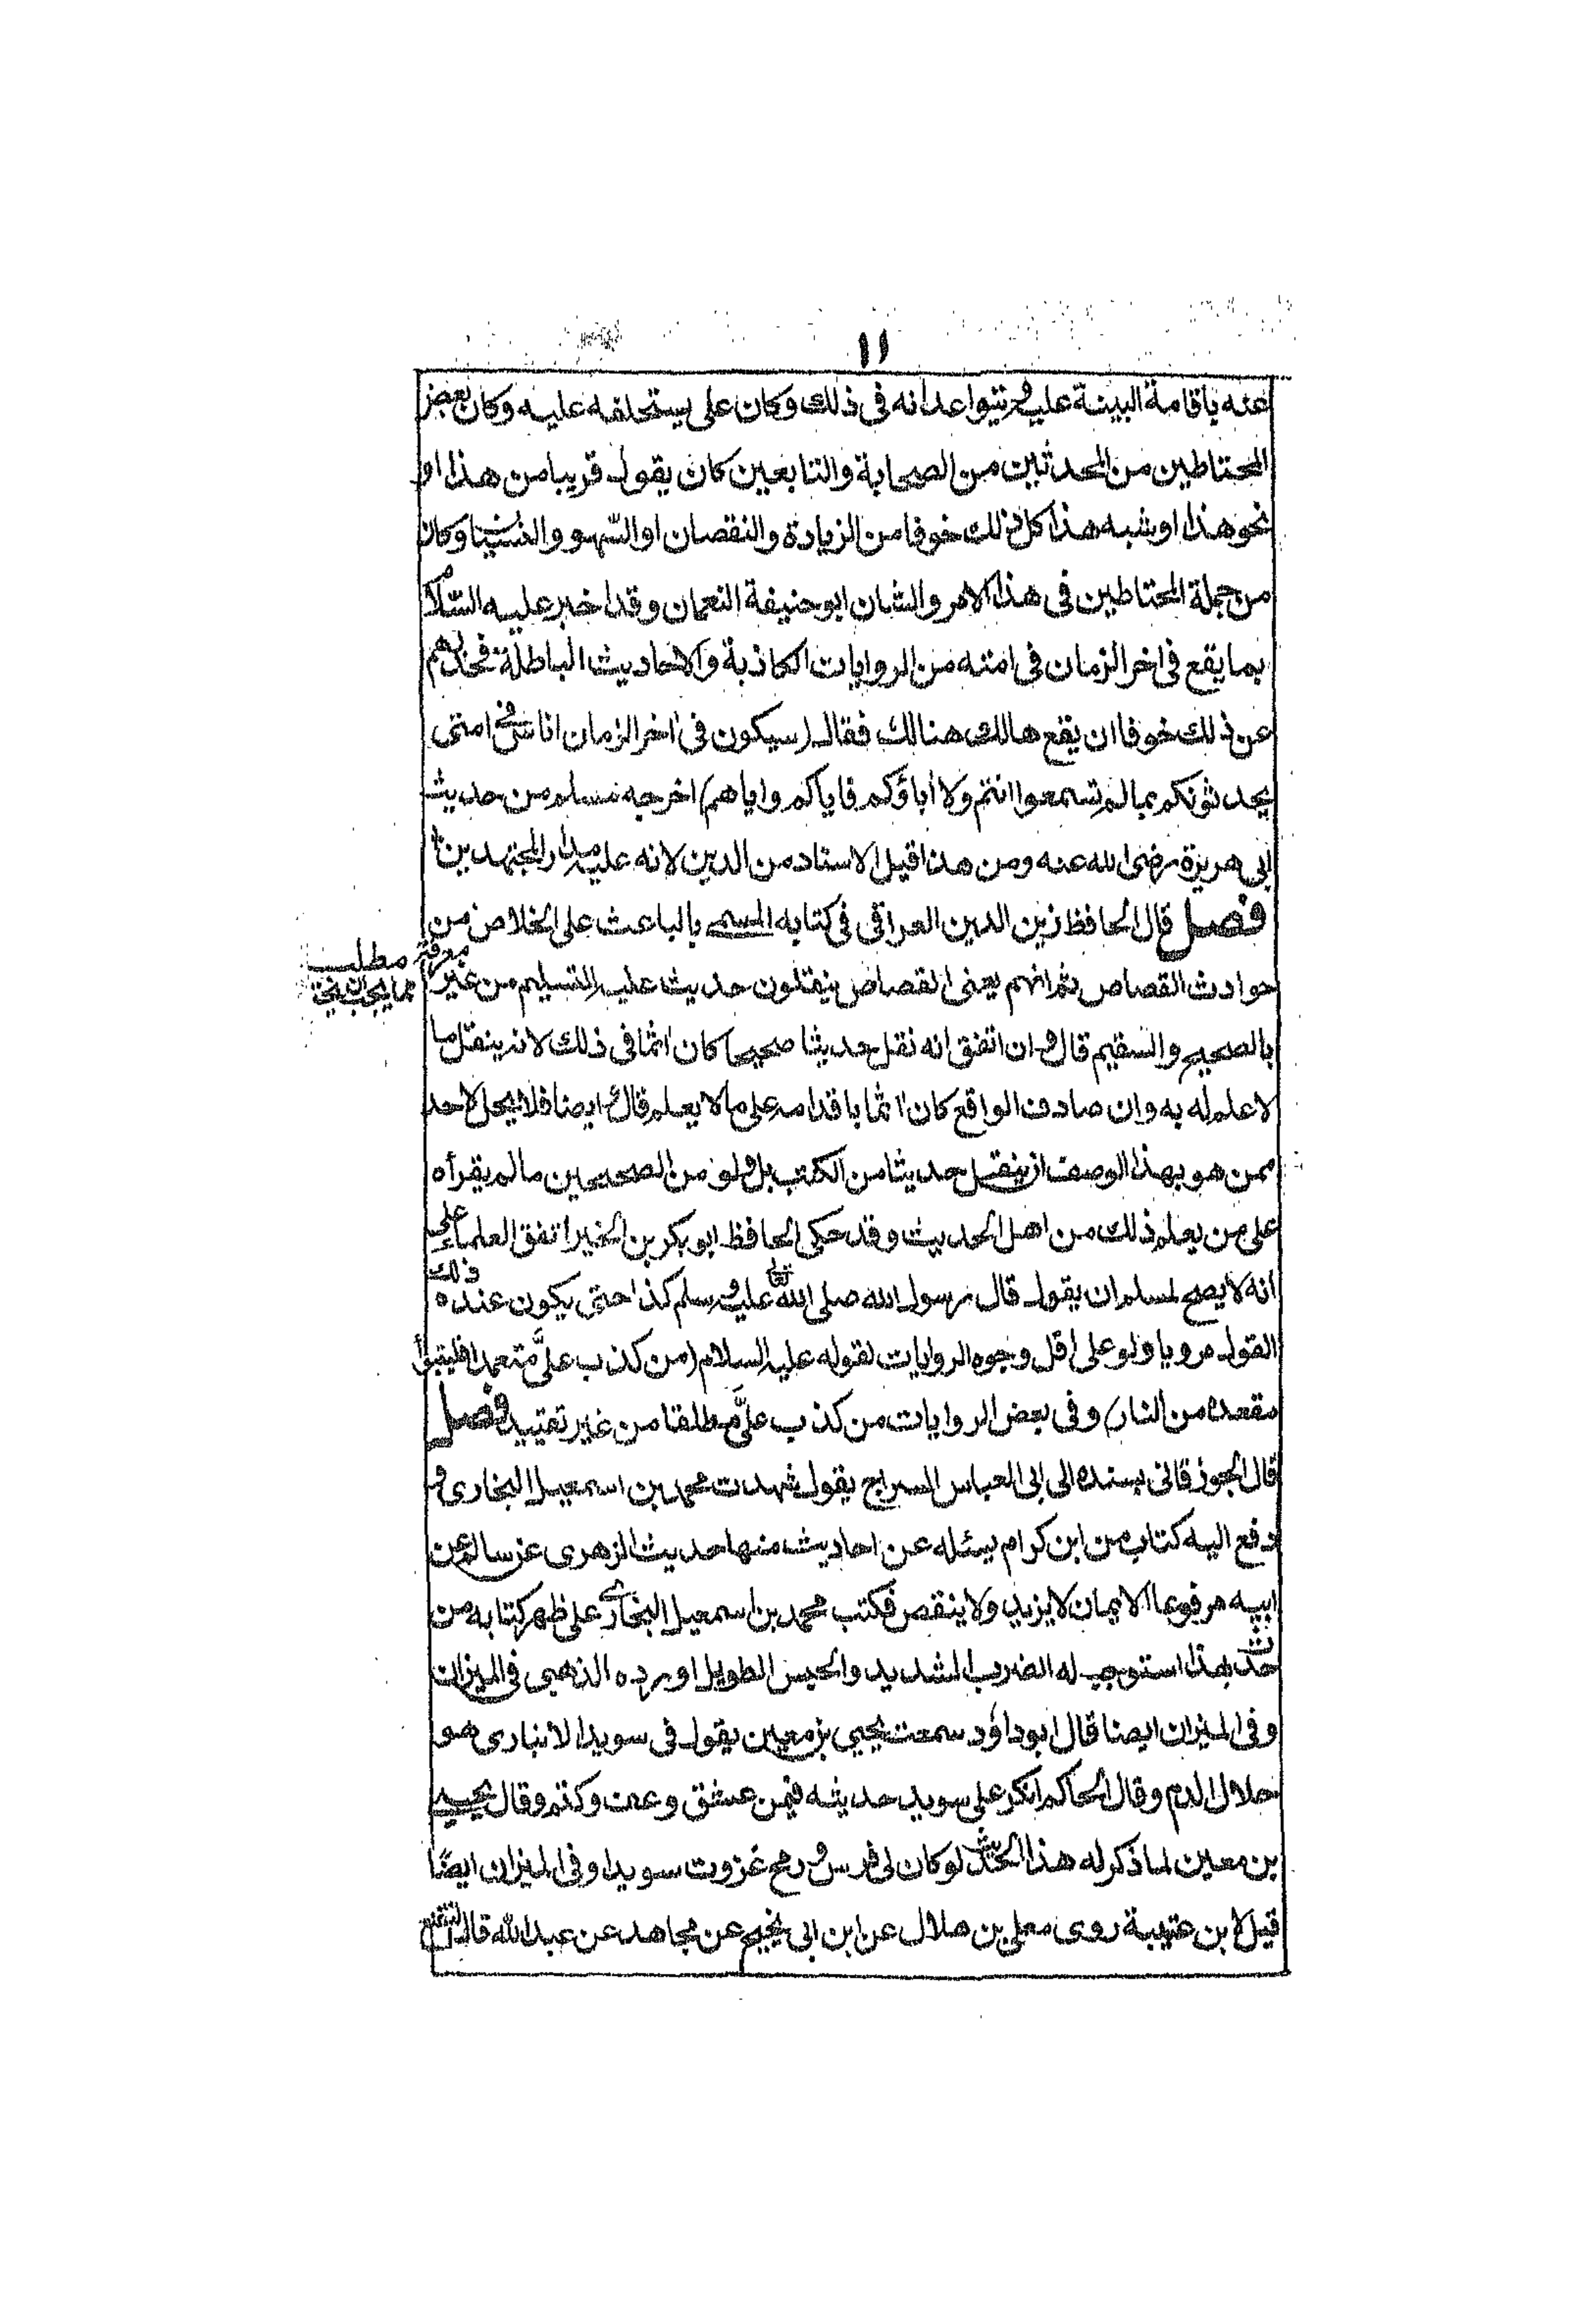 ١١
عنه باقامة البينة عليه ويتواعدانه فى ذلك وكان على يستحلفه عليه وكان بعض
المحتاطين من المحدثين من الصحابة والتابعين كان يقول قريبا من هذا او
نحو هذا او شبه هذا كل ذلك خوفا من الزيادة والنقصان او السهو والنسيان وكان
من جملة المحتاطين فى هذا الامر والشان ابو حنيفة النعمان وقد اخبر عليه السلام
بما يقع فى اخر الزمان فى امته من الروايات الكاذبة والاحاديث الباطلة فحذرهم
عن ذلك خوفا ان يقع هالك هنالك فقال (سيكون فى اخر الزمان اناس فى امتى
يحدثونكم بما لم تسمعوا انتم ولا أباؤكم فاياكم واياهم) اخرجه مسلم من حديث
ابى هريرة رضى الله عنه ومن هذا قيل الاسناد من الدين لانه عليه مدار المجتهدين
فصل قال الحافظ زين الدين العراقى فى كتابه المسمى بالباعث على الخلاص من
حوادث القصاص ثم انهم يعنى القصاص ينقلون حديث عليه التسليم من غير معرفة
مطلب
بالصحيح والسقيم قال وان اتفق انه نقل حديثا صحيحا كان اثما فى ذلك لانه ينقل ما
لا علم له به وان صادف الواقع كان اثما باقدامه على ما لا يعلم قال ايضا فلا يحل لاحد
ممن هو بهذا الوصف ان ينقل حديثا من الكتب بل ولو من الصحيحين ما لم يقرأه
على من يعلم ذلك من اهل الحديث وقد حكى الحافظ ابو بكر بن الخير اتفق العلماء على
انه لا يصح لمسلم ان يقول قال رسول الله صلى الله تعالى عليه وسلم كذا حتى يكون عنده ذلك
القول مرويا ولو على اقل وجوه الروايات لقوله عليه السلام (من كذب علىَّ متعمدا فليتبوأ
مقعده من النار) وفى بعض الروايات من كذب علىَّ مطلقا من غير تقييد فصل
قال الجوزقانى بسنده الى ابى العباس السراج يقول شهدت محمد بن اسمعيل البخارى و
دفع اليه كتاب من ابن كرام يسئله عن احاديث منها حديث الزهرى عن سالم عن
ابيه مرفوعا الايمان لا يزيد ولا ينقص فكتب محمد بن اسمعيل البخارى على ظهر كتابه من
حدث بهذا استوجب له الضرب الشديد والحبس الطويل اورده الذهبى فى الميزان
وفى الميزان ايضا قال ابو داؤد سمعت يحيى بن معين يقول فى سويد الانبارى هو
حلال الدم وقال الحاكم انكر على سويد حديثه فيمن عشق وعف وكتم وقال يحيى
بن معين لما ذكر له هذا الحديث لو كان لى فرس ورمح غزوت سويدا وفى الميزان ايضًا
قيل لابن عتيبة روى معلى بن هلال عن ابن ابى نجيح عن مجاهد عن عبد الله قال التقنع